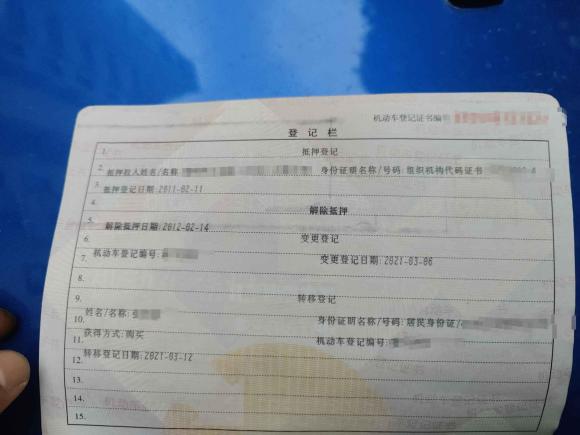 机动车登记证书编号
登记栏
1. 抵押登记
2. 抵押权人姓名/名称 身份证明名称/号码:组织机构代码证书
3. 抵押登记日期:2011-02-11
4. 解除抵押
5. 解除抵押日期:2012-02-14
6. 变更登记
7. 机动车登记编号: 变更登记日期:2021-03-06
8.
9. 转移登记
10. 姓名/名称: 身份证明名称/号码:居民身份证/
11. 获得方式:购买 机动车登记编号:
12. 转移登记日期:2021-03-12
13.
14.
15.